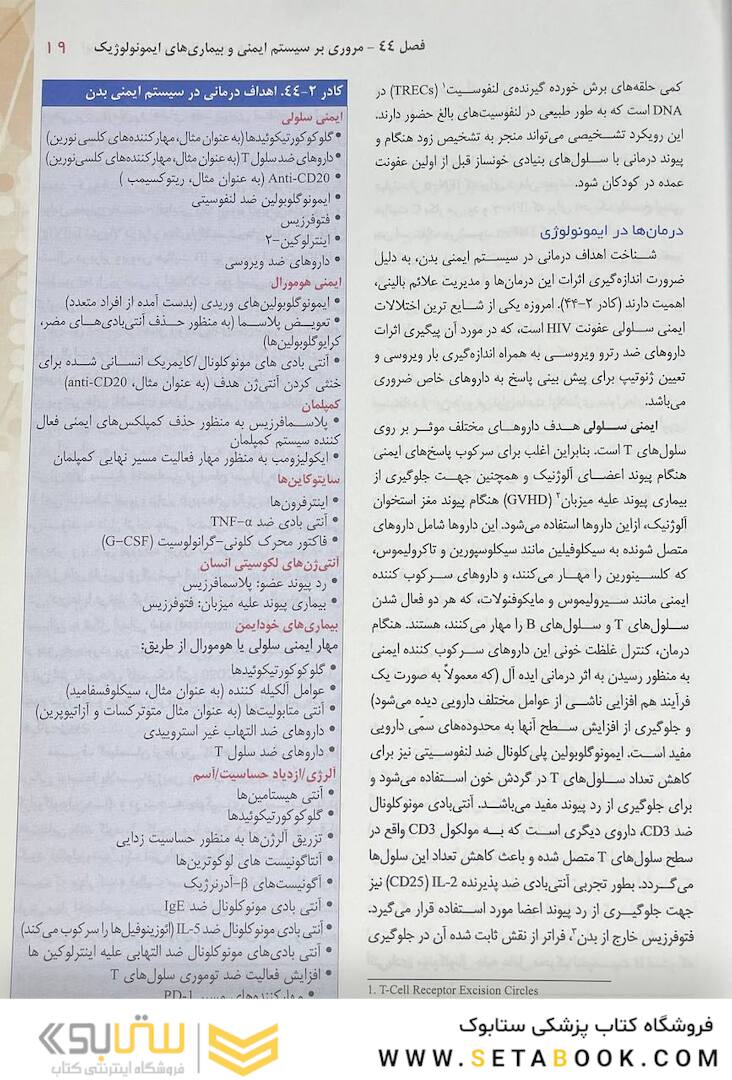 فصل ۴۴ - مروری بر سیستم ایمنی و بیماری‌های ایمونولوژیک ۱۹
کمی حلقه‌های برش خورده گیرنده‌ی لنفوسیت۱ (TRECs) در
DNA است که به طور طبیعی در لنفوسیت‌های بالغ حضور دارند.
این رویکرد تشخیصی می‌تواند منجر به تشخیص زود هنگام و
پیوند درمانی با سلول‌های بنیادی خونساز قبل از اولین عفونت
عمده در کودکان شود.
درمان‌ها در ایمونولوژی
شناخت اهداف درمانی در سیستم ایمنی بدن، به دلیل
ضرورت اندازه‌گیری اثرات این درمان‌ها و مدیریت علائم بالینی،
اهمیت دارند (کادر ۲-۴۴). امروزه یکی از شایع ترین اختلالات
ایمنی سلولی عفونت HIV است، که در مورد آن پیگیری اثرات
داروهای ضد رترو ویروسی به همراه اندازه‌گیری بار ویروسی و
تعیین ژنوتیپ برای پیش بینی پاسخ به داروهای خاص ضروری
می‌باشد.
ایمنی سلولی هدف داروهای مختلف موثر بر روی
سلول‌های T است. بنابراین اغلب برای سرکوب پاسخ‌های ایمنی
هنگام پیوند اعضای آلوژنیک و همچنین جهت جلوگیری از
بیماری پیوند علیه میزبان۲ (GVHD) هنگام پیوند مغز استخوان
آلوژنیک، ازاین داروها استفاده می‌شود. این داروها شامل داروهای
متصل شونده به سیکلوفیلین مانند سیکلوسپورین و تاکرولیموس،
که کلسینورین را مهار می‌کنند، و داروهای سرکوب کننده
ایمنی مانند سیرولیموس و مایکوفنولات، که هر دو فعال شدن
سلول‌های T و سلول‌های B را مهار می‌کنند، هستند. هنگام
درمان، کنترل غلظت خونی این داروهای سرکوب کننده ایمنی
به منظور رسیدن به اثر درمانی ایده آل (که معمولاً به صورت یک
فرآیند هم افزایی ناشی از عوامل مختلف دارویی دیده می‌شود)
و جلوگیری از افزایش سطح آنها به محدوده‌های سمّی دارویی
مفید است. ایمونوگلوبولین پلی‌کلونال ضد لنفوسیتی نیز برای
کاهش تعداد سلول‌های T در گردش خون استفاده می‌شود و
برای جلوگیری از رد پیوند مفید می‌باشد. آنتی‌بادی مونوکلونال
ضد CD3، داروی دیگری است که به مولکول CD3 واقع در
سطح سلول‌های T متصل شده و باعث کاهش تعداد این سلول‌ها
می‌گردد. بطور تجربی آنتی‌بادی ضد پذیرنده IL-2 (CD25) نیز
جهت جلوگیری از رد پیوند اعضا مورد استفاده قرار می‌گیرد.
فتوفرزیس خارج از بدن۳، فراتر از نقش ثابت شده آن در جلوگیری
1. T-Cell Receptor Excision Circles
کادر ۲-۴۴. اهداف درمانی در سیستم ایمنی بدن
ایمنی سلولی
• گلوکوکورتیکوئیدها(به عنوان مثال، مهارکننده‌های کلسی نورین)
• داروهای ضد سلول T (به عنوان مثال، مهارکننده‌های کلسی نورین)
• Anti-CD20 (به عنوان مثال، ریتوکسیمب )
• ایمونوگلوبولین ضد لنفوسیتی
• فتوفرزیس
• اینترلوکین-۲
• داروهای ضد ویروسی
ایمنی هومورال
• ایمونوگلوبولین‌های وریدی (بدست آمده از افراد متعدد)
• تعویض پلاسما (به منظور حذف آنتی‌بادی‌های مضر،
کرایوگلوبولین‌ها)
• آنتی بادی های مونوکلونال/کایمریک انسانی شده برای
خنثی کردن آنتی‌ژن هدف (به عنوان مثال، anti-CD20)
کمپلمان
• پلاسمافرزیس به منظور حذف کمپلکس‌های ایمنی فعال
کننده سیستم کمپلمان
• ایکولیزومب به منظور مهار فعالیت مسیر نهایی کمپلمان
سایتوکاین‌ها
• اینترفرون‌ها
• آنتی بادی ضد TNF-α
• فاکتور محرک کلونی-گرانولوسیت (G-CSF)
آنتی‌ژن‌های لکوسیتی انسان
• رد پیوند عضو: پلاسمافرزیس
• بیماری پیوند علیه میزبان: فتوفرزیس
بیماری‌های خودایمن
مهار ایمنی سلولی یا هومورال از طریق:
• گلوکوکورتیکوئیدها
• عوامل آلکیله کننده (به عنوان مثال، سیکلوفسفامید)
• آنتی متابولیت‌ها (به عنوان مثال متوترکسات و آزاتیوپرین)
• داروهای ضد التهاب غیر استروییدی
• داروهای ضد سلول T
آلرژی/ازدیاد حساسیت/آسم
• آنتی هیستامین‌ها
• گلوکوکورتیکوئیدها
• تزریق آلرژن‌ها به منظور حساسیت زدایی
• آنتاگونیست های لوکوترین‌ها
• آگونیست‌های β-آدرنرژیک
• آنتی بادی مونوکلونال ضد IgE
• آنتی بادی مونوکلونال ضد IL-5 (ائوزینوفیل‌ها را سرکوب می‌کند)
• آنتی بادی‌های مونوکلونال ضد التهابی علیه اینترلوکین ها
• افزایش فعالیت ضد توموری سلول‌های T
• مهارکننده‌های مسیر PD-1
فروشگاه کتاب پزشکی ستابوک
WWW.SETABOOK.COM
ستابوک
فروشگاه اینترنتی کتاب